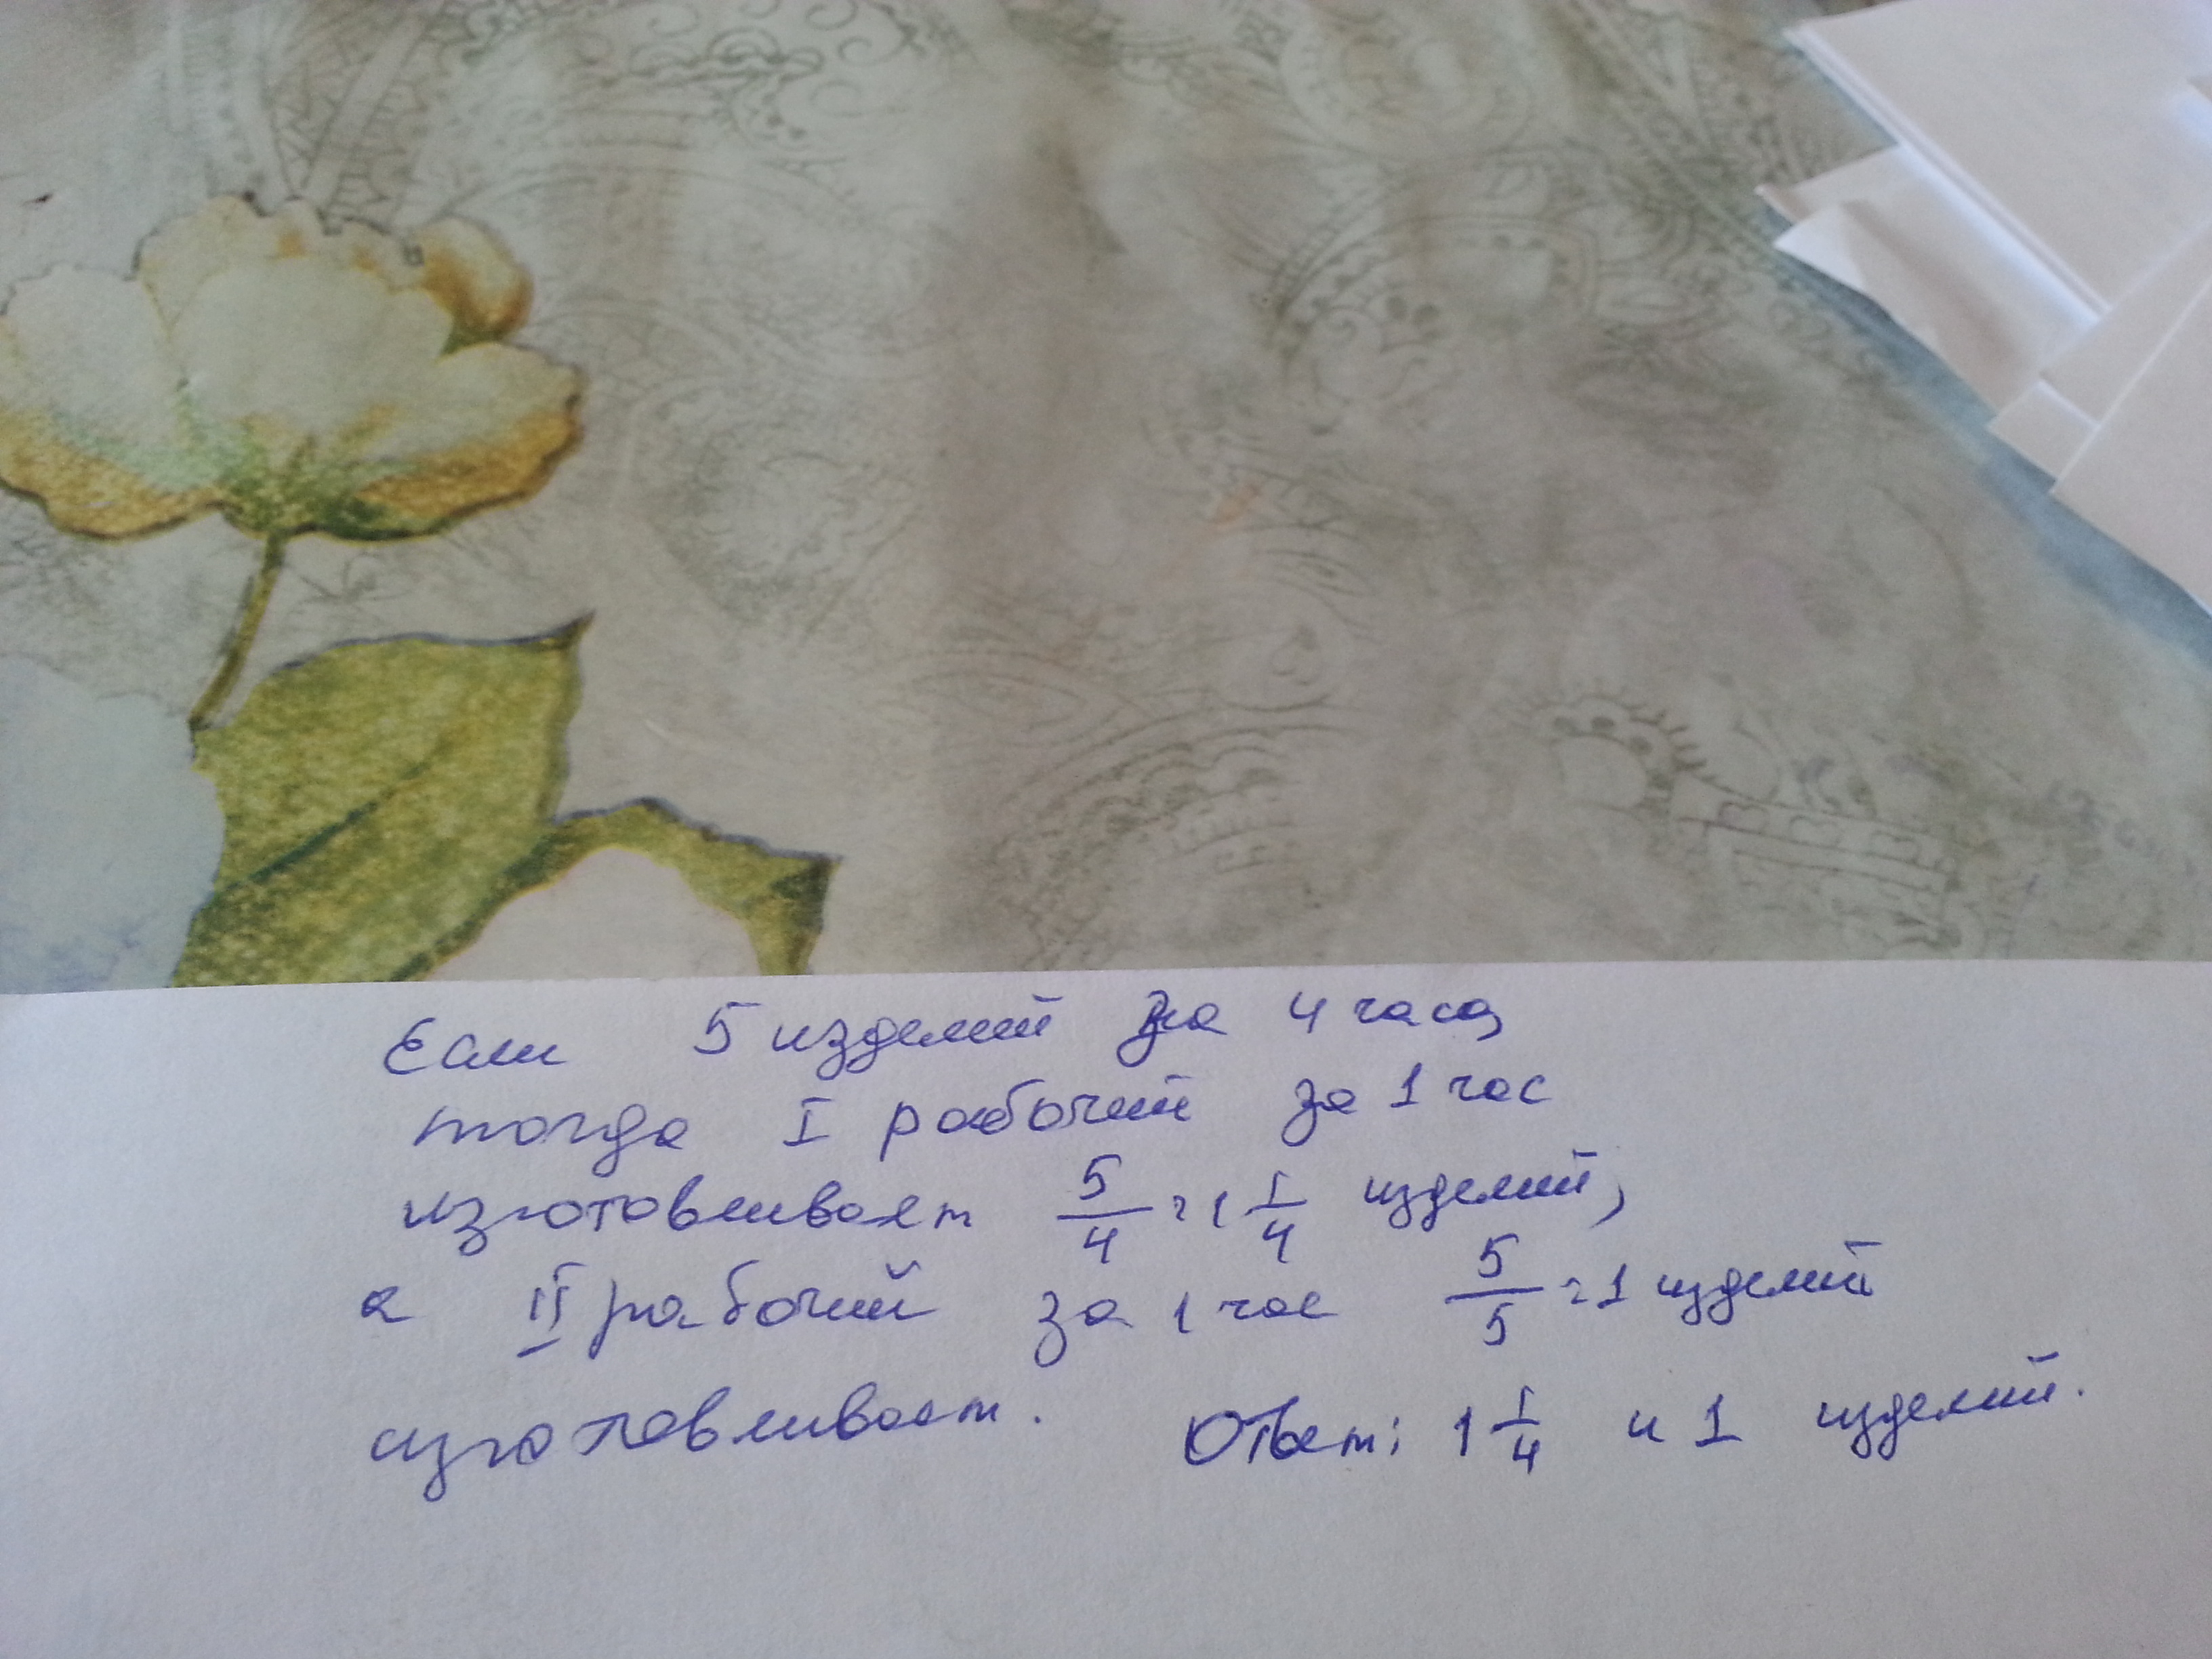 Если 5 изделий за 4 часа,
тогда I рабочий за 1 час
изготавливает 5/4 = 1 1/4 изделий,
а II рабочий за 1 час 5/5 = 1 изделий
изготавливает. Ответ: 1 1/4 и 1 изделий.